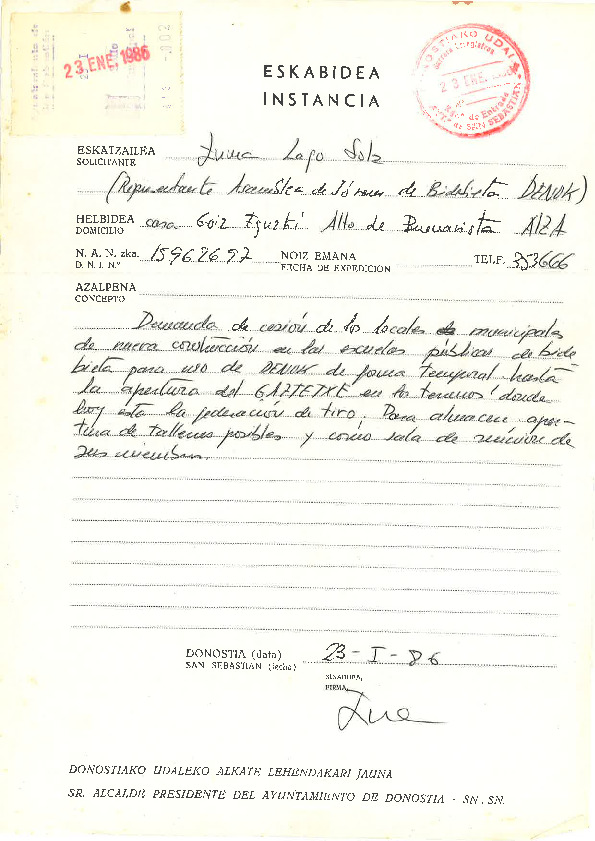 23 ENE. 1986
DONOSTIAKO UDALA
23 ENE. 1986
Rgtº. de Entrada
AYTº. de SAN SEBASTIAN
ESKABIDEA
INSTANCIA
ESKATZAILEA
SOLICITANTE
Lago Solz
(Representante Asamblea de Jóvenes de Bidebieta DENOK)
HELBIDEA
DOMICILIO
casa Goiz Eguzki Alto de Buenavista AlZA
N. A. N. zka. 15967697 NOIZ EMANA TELF. 353666
D. N. I. N.º FECHA DE EXPEDICION
AZALPENA
CONCEPTO
Demanda de cesión de los locales municipales
de nueva construcción en las escuelas públicas de Bide
bieta para uso de DENOK de forma temporal hasta
la apertura del GAZTETXE en los terrenos donde
hoy está la federación de tiro. Para almacen aper-
tura de talleres posibles y como sala de reunión de
sus miembros.
DONOSTIA (data) 23-I-86
SAN SEBASTIAN (fecha)
SINADURA,
FIRMA,
DONOSTIAKO UDALEKO ALKATE LEHENDAKARI JAUNA
SR. ALCALDE PRESIDENTE DEL AYUNTAMIENTO DE DONOSTIA - SN. SN.